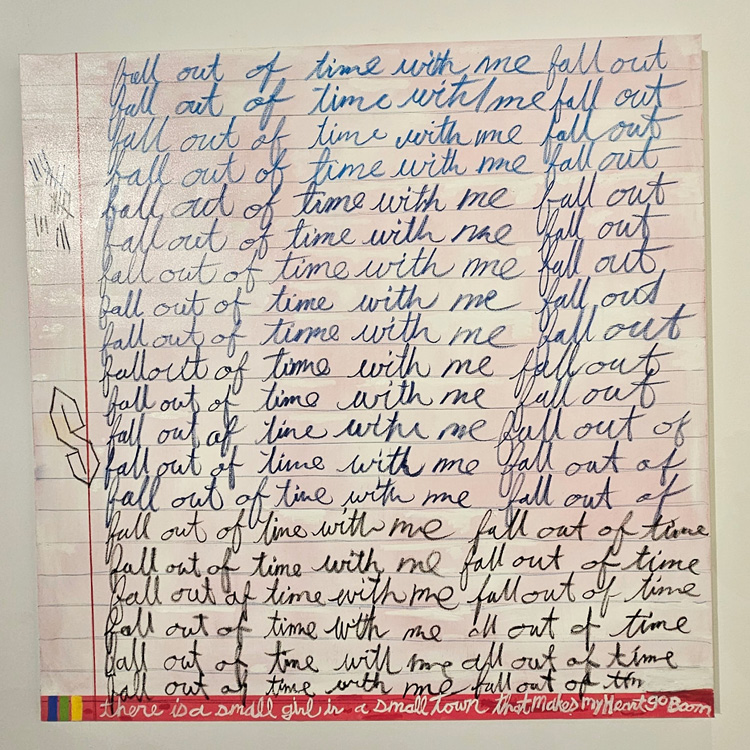 fall out of time with me fall out
fall out of time with me fall out
fall out of time with me fall out
fall out of time with me fall out
fall out of time with me fall out
fall out of time with me fall out
fall out of time with me fall out
fall out of time with me fall out
fall out of time with me fall out
fall out of time with me fall out
fall out of time with me fall out
fall out of time with me fall out of
fall out of time with me fall out of
fall out of time with me fall out of
fall out of time with me fall out of time
fall out of time with me fall out of time
fall out of time with me fall out of time
fall out of time with me all out of time
fall out of time with me all out of time
fall out of time with me fall out of
there is a small girl in a small town that makes my Heart go Boom